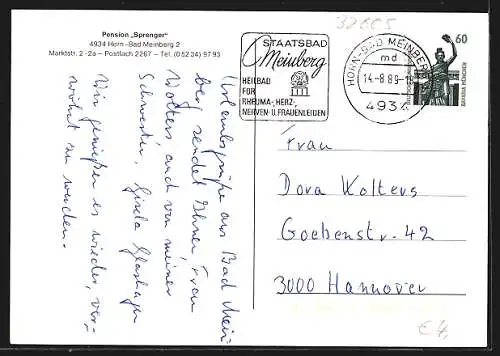 Pension „Sprenger"
4934 Horn-Bad Meinberg 2
Marktstr. 2-2a – Postfach 2267 – Tel. (0 52 34) 97 93
37605
STAATSBAD
Meinberg
HEILBAD
FÜR
RHEUMA-, HERZ-,
NERVEN- U. FRAUENLEIDEN
HORN-BAD MEINBERG
md
14.-8.89-18
4934
60
BAVARIA MÜNCHEN
Urlaubsgrüße aus Bad Mein-
berg sendet Ihnen, Frau
Wolters, auch von meiner
Schwester, Gisela
Wir genießen es wieder, ver-
wöhnt zu werden.
Frau
Dora Wolters
Goebenstr. 42
3000 Hannover
€ 4,